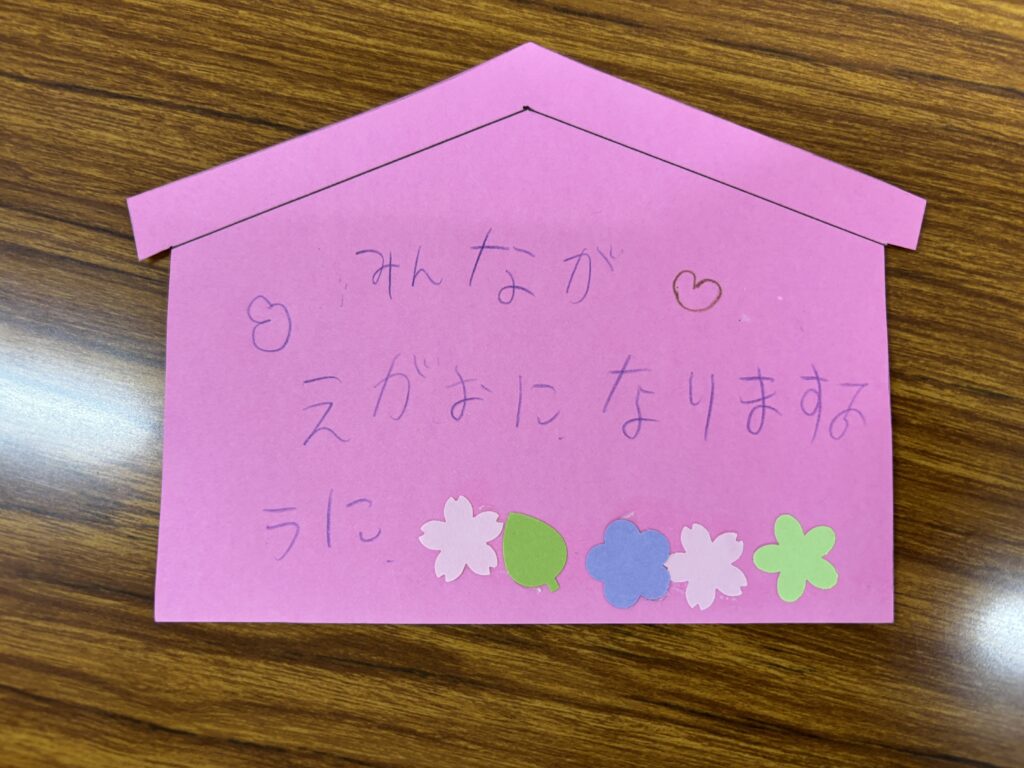 みんなが
えがおになりますよ
うに